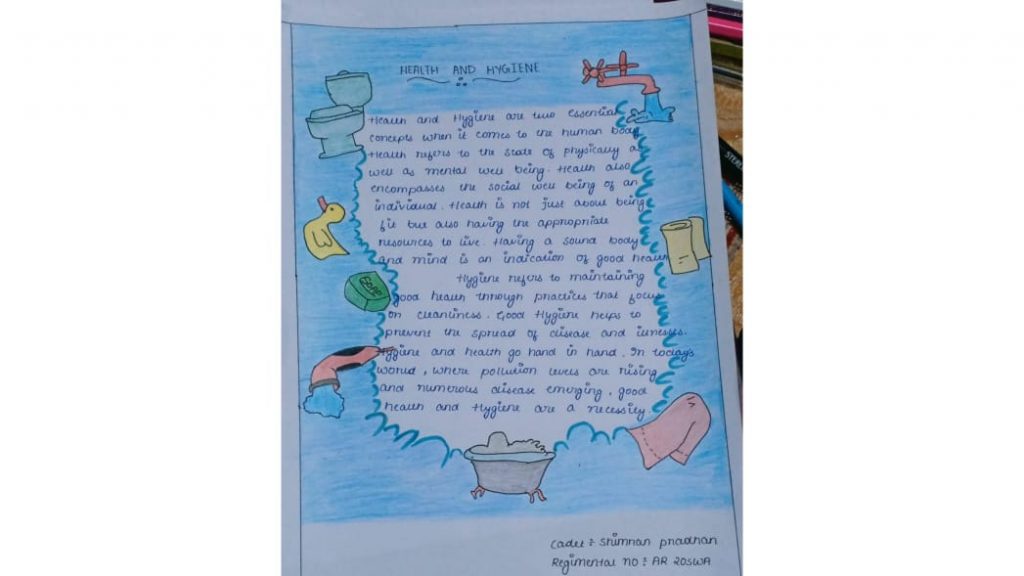 HEALTH AND HYGIENE
Health and Hygiene are two Essential
concepts when it comes to the human body
Health refers to the state of physically a
well as mental well being. Health also
encompasses the social well being of an
individual. Health is not just about being
fit but also having the appropriate
resources to live. Having a sound body
and mind is an indication of good health
Hygiene refers to maintaining
good health through practices that focus
on cleanliness. Good Hygiene helps to
prevent the spread of disease and illnesses.
Hygiene and health go hand in hand. In today's
world, where pollution levels are rising
and numerous disease emerging, good
health and Hygiene are a necessity
SOAP
Cadet : Shimran Pradhan
Regimental no : AR 20SWA